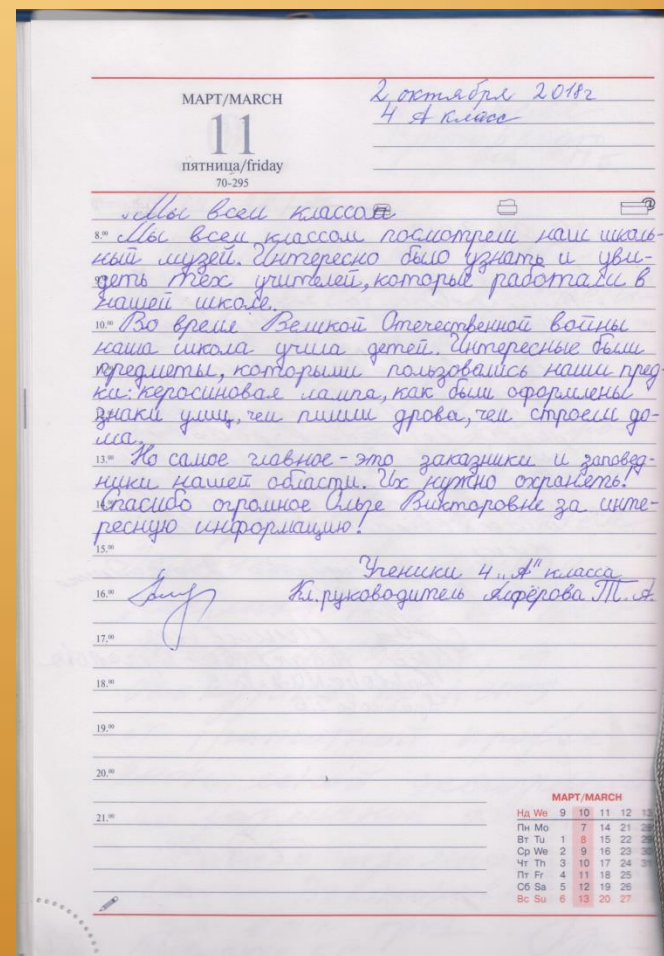 МАРТ/MARCH
11
пятница/friday
70-295
2 октября 2018г
4 А класс
Мы всем классом
8.00 Мы всем классом посмотрели наш школь-
ный музей. Интересно было узнать и уви-
деть тех учителей, которые работали в
нашей школе.
10.00 Во время Великой Отечественной войны
наша школа учила детей. Интересные были
предметы, которыми пользовались наши пред-
ки: керосиновая лампа, как были оформлены
знаки улиц, чем пилили дрова, чем строили до-
ма.
13.00 Но самое главное - это заказники и заповед-
ники нашей области. Их нужно охранять!
Спасибо огромное Ольге Викторовне за инте-
ресную информацию!
15.00
Ученики 4 „А" класса
16.00 Кл. руководитель Алфёрова Т. А.
17.00
18.00
19.00
20.00
21.00
МАРТ/MARCH
Нд We 9 10 11 12 13
Пн Mo 7 14 21 28
Вт Tu 1 8 15 22 29
Ср We 2 9 16 23 30
Чт Th 3 10 17 24 31
Пт Fr 4 11 18 25
Сб Sa 5 12 19 26
Вс Su 6 13 20 27